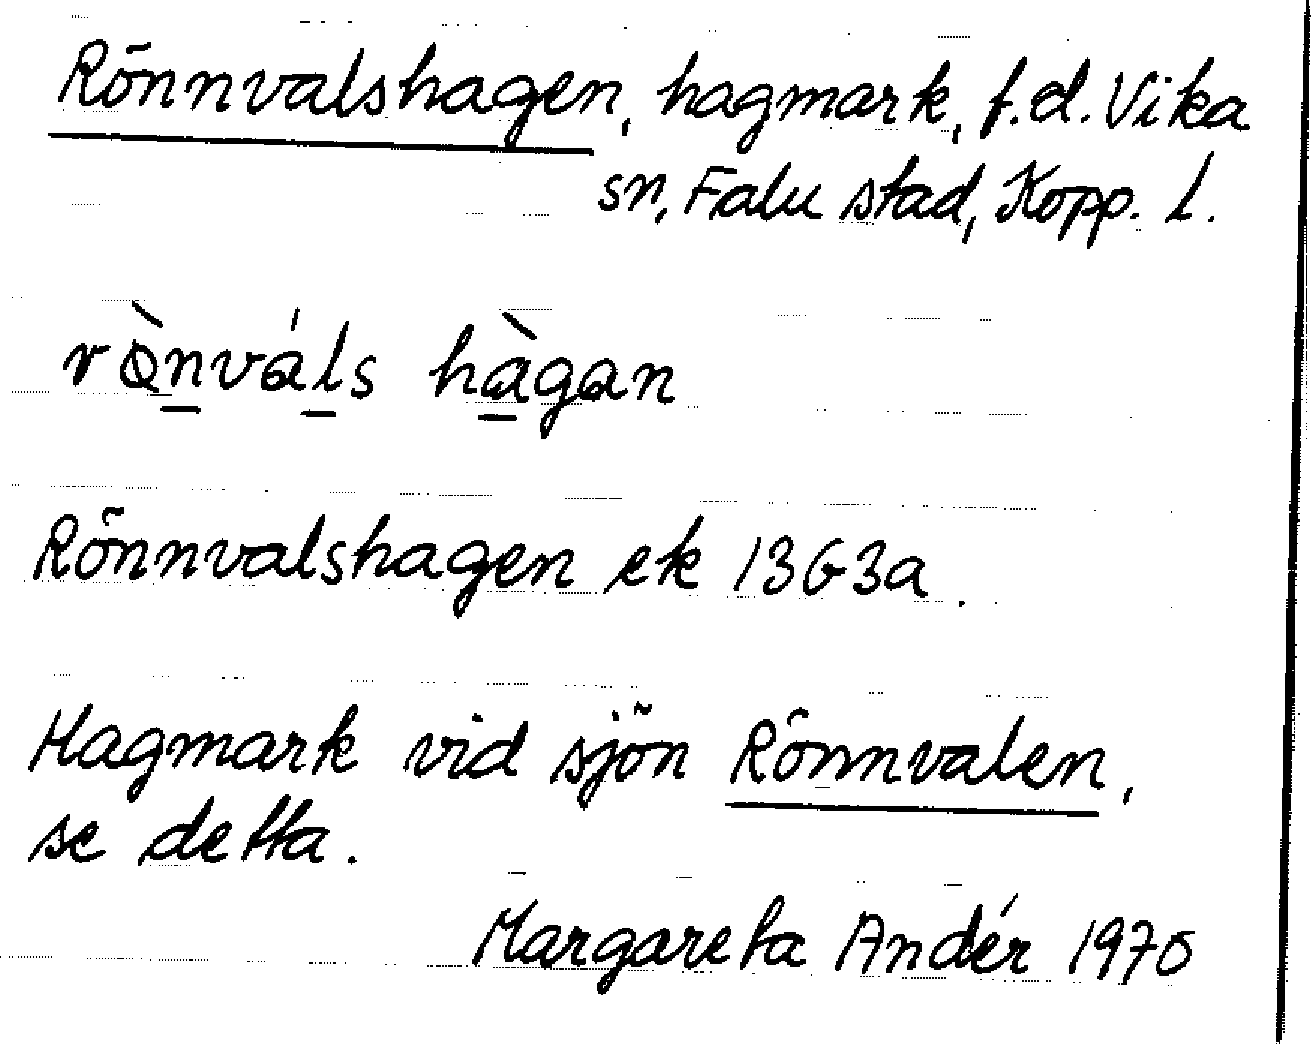 Rönnvalshagen, hagmark, f.d. Vika
sn, Falu stad, Kopp. l.
rò̱nváls hàgan
Rönnvalshagen ek 13G3a.
Hagmark vid sjön Rönnvalen,
se detta.
Margareta Andér 1970